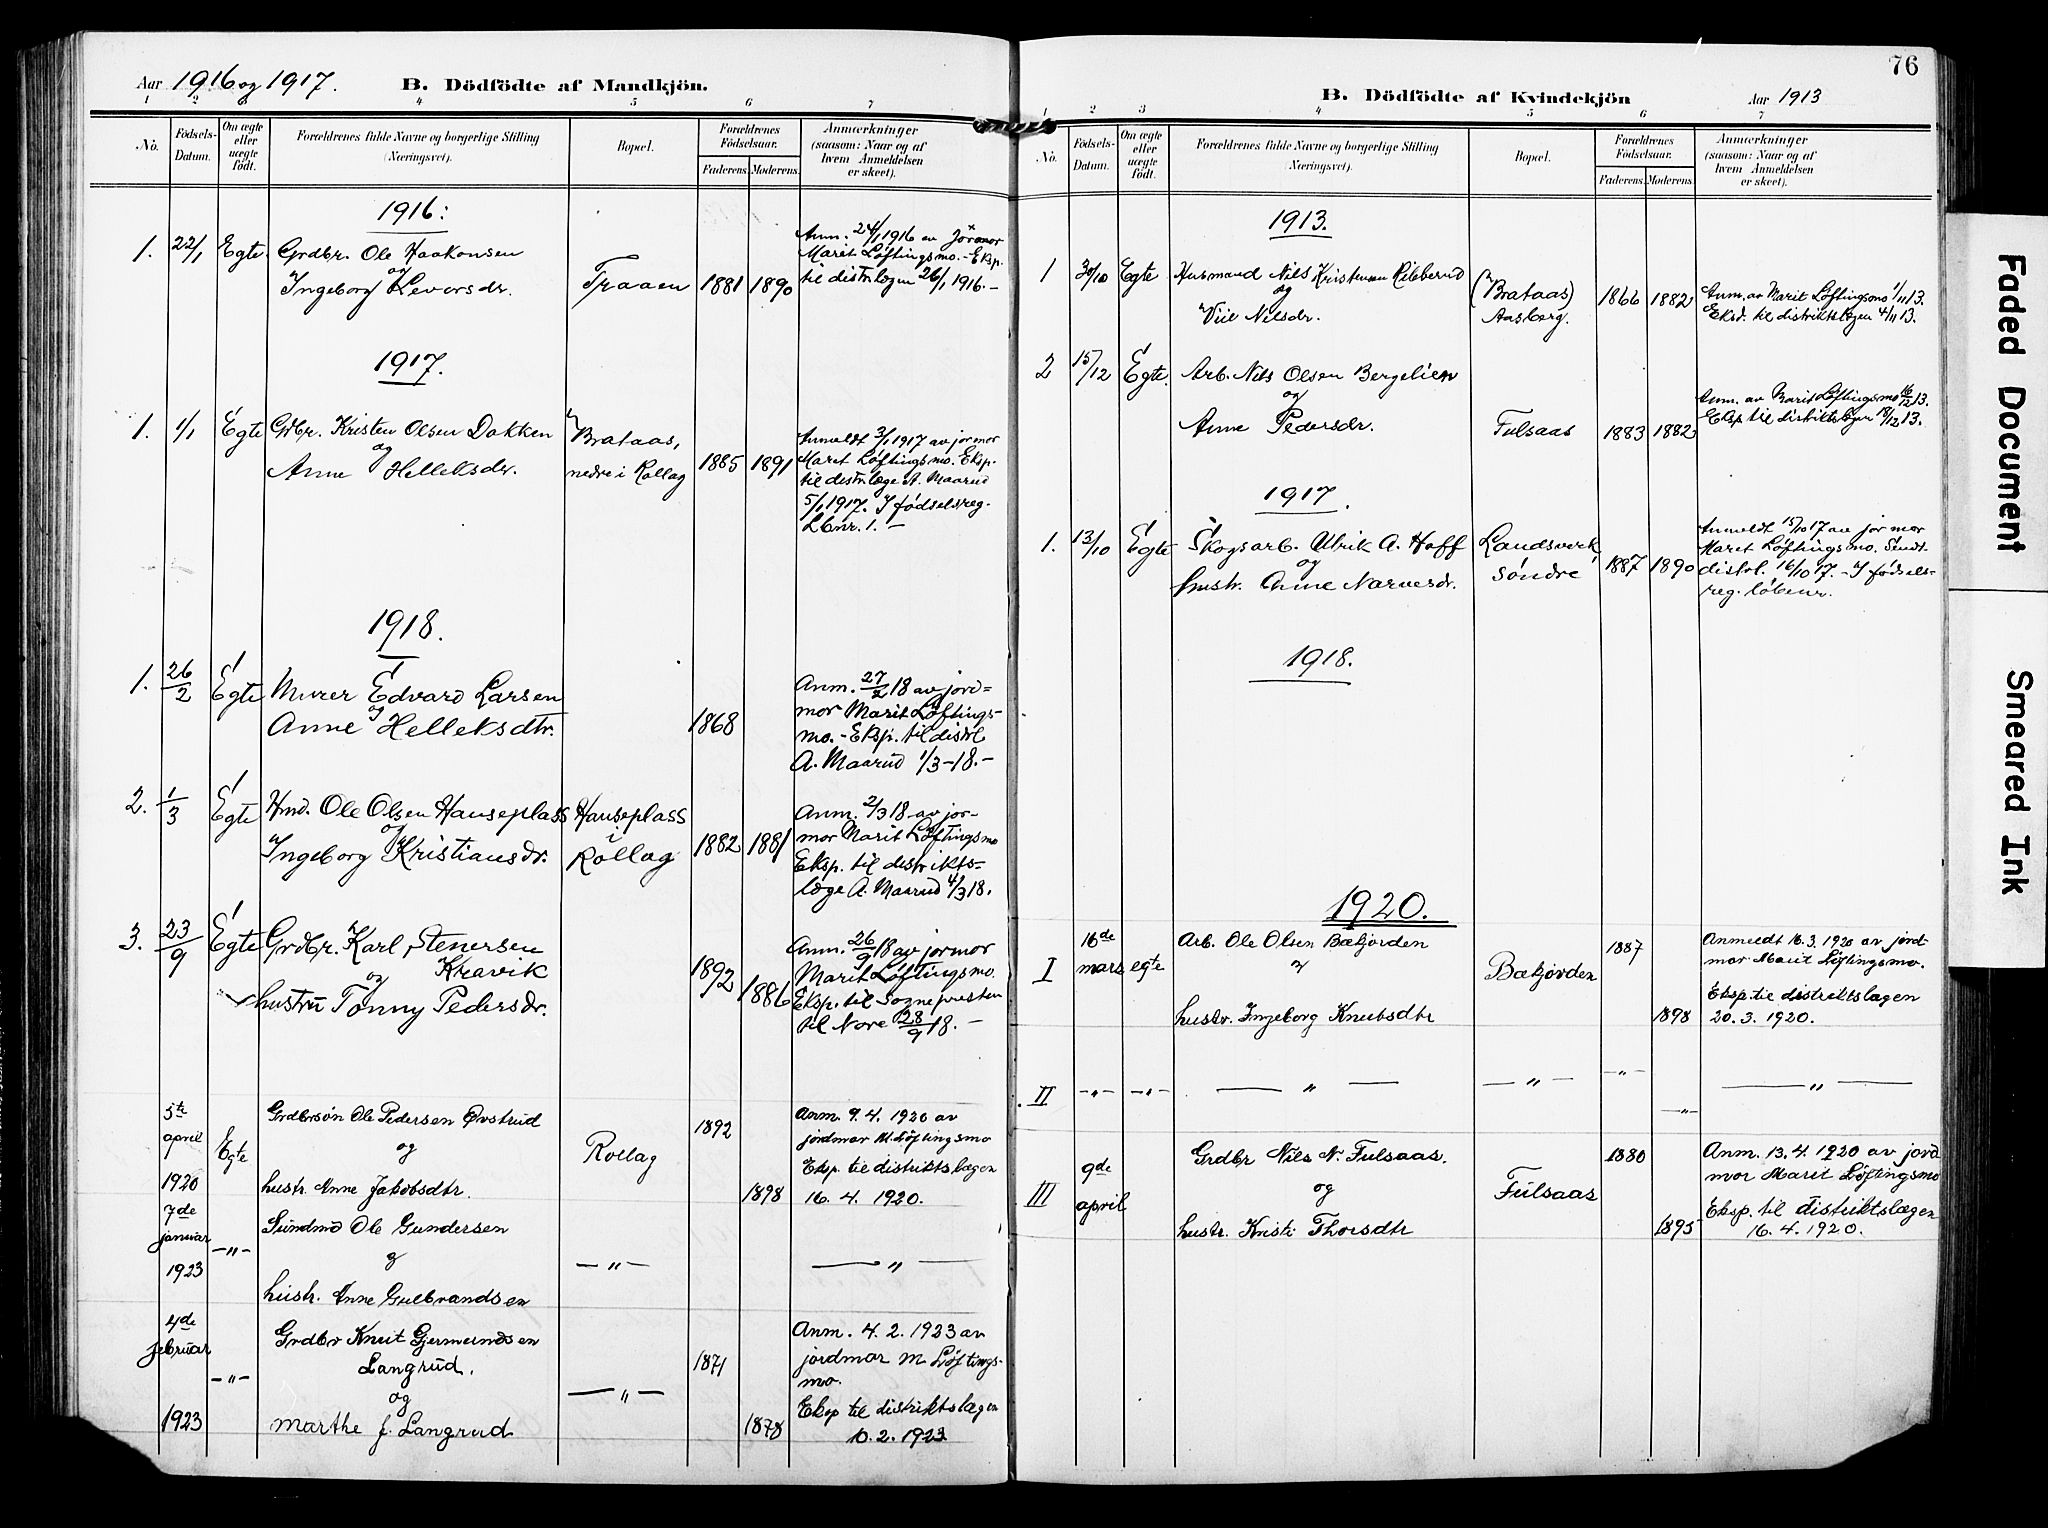 Aar 1916 og 1917.
B. Dödfödte af Mandkjön.
1 2 3 4 5 6 7
No.
Födsels-
Datum.
Om ægte
eller
uægte
födt.
Forældrenes fulde Navne og borgerlige Stilling
(Næringsvei).
Bopæl.
Forældrenes
Födselsaar.
Faderens. Moderens.
Anmærkninger
(saasom: Naar og af
hvem Anmeldelsen
er skeet).
1916:
1. 22/1 Egte. Grdbr. Ole Haakonsen
og
Ingeborg Leversdr.
Traaen 1881 1890
Anm. 24/1 1916 av
Marit Løftingsmo. - Eksp.
til distr.lægen 26/1 1916. -
1917.
1. 1/1 Egte Grbr. Kristen Olsen Dokken
og
Anne Helleksdr.
Brataas,
nedre i Rollag
1885 1891
Anmeldt 3/1 1917 av jormor
Maret Løftingsmo. Eksp.
til distr.læge A. Maarud
5/1 1917. I fødselsreg.
Lbnr. 1. -
1918.
1. 26/2 Egte Murer Edvard Larsen
og
Anne Helleksdtr.
1868
Anm. 27/2 18 av jord=
mor Marit Løftings-
mo. - Eksp. til distrl
A. Maarud 1/3 - 18. -
2. 1/3 Egte Hmd. Ole Olsen Hanseplass
og
Ingeborg Kristiansdr.
Hanseplass
i
Rollag
1882 1881
Anm. 2/3 18 av jor-
mor Marit Løftingsmo
Eksp. til distrikts-
læge A. Maarud 4/3 18.
3. 23/9 Egte Grdbr. Karl Stenersen
Kravik
og
hustru Tonny Pedersdr.
1892 1886
Anm. 26/9 18 av jormor
Marit Løftingsmo.
Eksp. til Sognepresten
til Nore 28/9 18. -
5te
april
1920
Egte
Grdbrsøn Ole Pedersen Øvstrud
og
hustr. Anne Jakobsdtr.
Rollag
1892
1898
Anm. 9. 4. 1920 av
jordmor M. Løftingsmo
Eksp til distriktslægen
16. 4. 1920.
7de
januar
1923
-"-
Ole Gundersen
og
hustr. Anne Gulbrandsen
-"-
-"-
4de
februar
1923
-"-
Grdbr Knut Gjermundsen
Langrud.
og
Marthe f. Langrud
-"-
1871
1878
Anm. 4. 2. 1923 av
jordmor M Løftings-
mo.
Eksp til distriktslægen
10. 2. 1923.
76
B. Dödfödte af Kvindekjön
Aar 1913
1 2 3 4 5 6 7
No.
Födsels-
Datum.
Om ægte
eller
uægte
födt.
Forældrenes fulde Navne og borgerlige Stilling
(Næringsvei).
Bopæl.
Forældrenes
Födselsaar.
Faderens. Moderens.
Anmærkninger
(saasom: Naar og af
hvem Anmeldelsen
er skeet).
1913.
1 30/10 Egte Husmand Nils Kristensen
og
Nilsdr.
(Brataas)
Aasberg.
1866 1882
Anm. av Marit Løftingsmo 1/11 13.
Eksd. til distriktslægen 4/11 13.
2 15/12 Egte. Arb. Nils Olsen Bergelien
og
Anne Pedersdr.
Fulsaas 1883 1882
Anm. av Marit Løftingsmo 16/12 13.
Eksp til distriktslægen 18/12 13.
1917.
1. 13/10 Egte Skogsarb. Ulrik A. Hoff
og
hustr. Anne Narvesdr.
Landsverk
søndre
1887 1890
Anmeldt 15/10 17 av jormor
Maret Løftingsmo. Sendt
distrl. 16/10 17. - I fødsels-
reg. løbenr.
1918.
1920.
I
16de
mars
egte
Arb. Ole Olsen Bækjorden
og
hustr. Ingeborg Knutsdtr
Bækjorden
1887
1898
Anmeldt 16. 3. 1920 av jord-
mor Marit Løftingsmo.
Eksp. til distriktslægen
20. 3. 1920.
II -"- -"- -"- -"- -"- -"- -"-
III
9de
april
Grdbr Nils N. Fulsaas.
og
hustr. Kristi Thorsdtr
Fulsaas
1880
1895
Anm. 13. 4. 1920 av jord
mor Marit Løftingsmo
Eksp. til distriktslægen
16. 4. 1920.
Faded Document
Smeared Ink